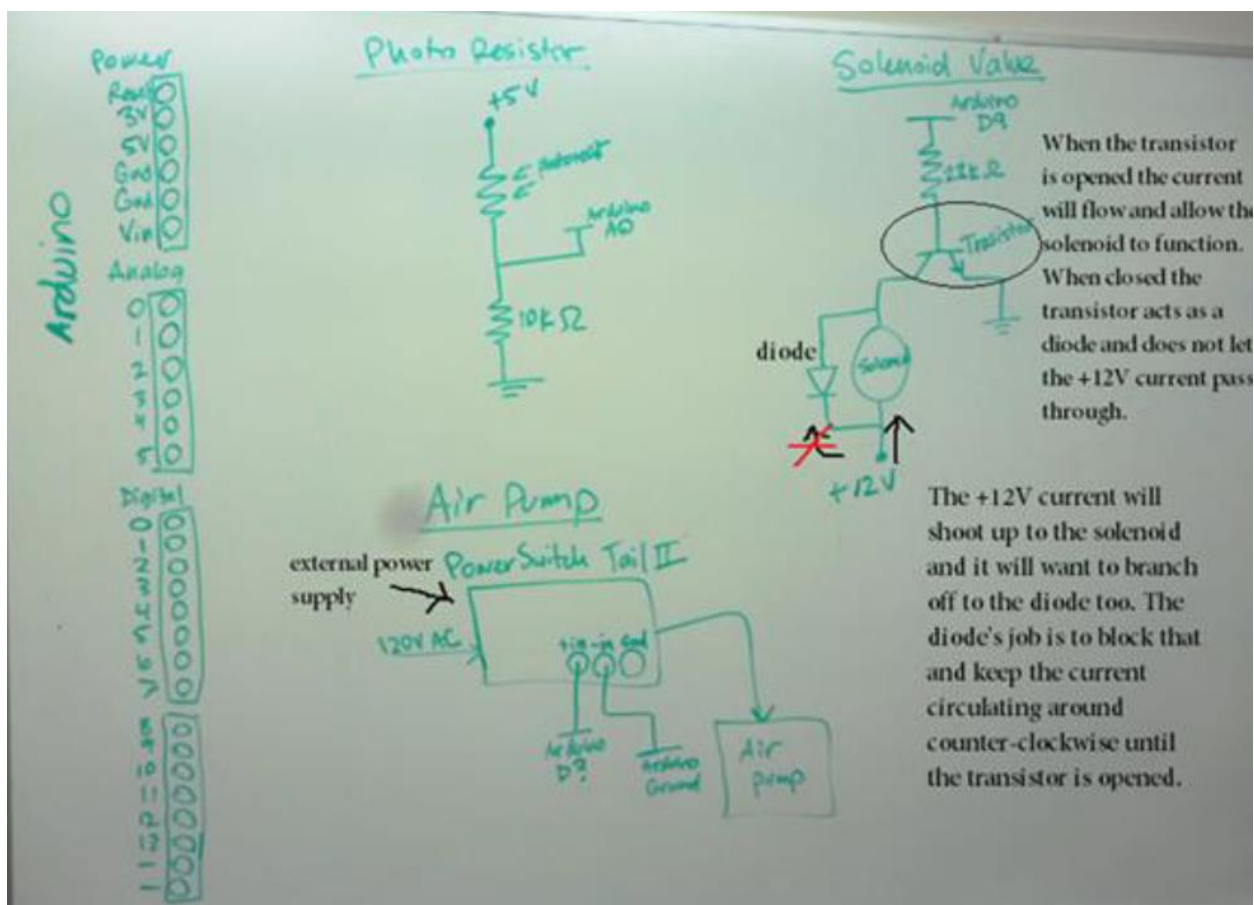 Arduino
Power
3V
5V
Gnd
Gnd
Vin
Analog
0
1
2
3
4
5
Digital
0
1
2
3
4
5
6
7
8
9
10
11
Photo Resistor
+5V
Arduino
A0
10kΩ
Solenoid Valve
Arduino
D9
Transistor
Solenoid
diode
+12V
When the transistor
is opened the current
will flow and allow the
solenoid to function.
When closed the
transistor acts as a
diode and does not let
the +12V current pass
through.
The +12V current will
shoot up to the solenoid
and it will want to branch
off to the diode too. The
diode's job is to block that
and keep the current
circulating around
counter-clockwise until
the transistor is opened.
Air Pump
PowerSwitch Tail II
external power
supply
120V AC
+in -in Gnd
Arduino
D?
Arduino
Ground
Air
pump